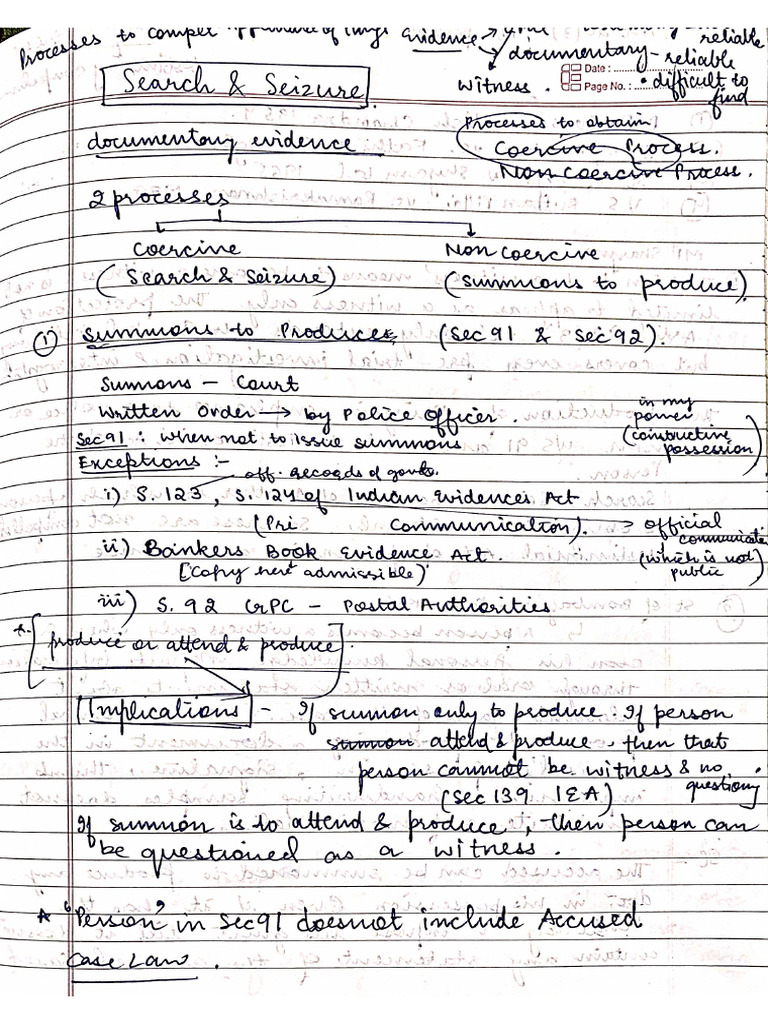 Processes to compel appearance of things Evidence
reliable
documentary - reliable
witness . • difficult to
find
Date :
Page No. :
Search & Seizure
Processes to obtain
documentary evidence
Coercive Process.
Non Coercive Process.
2 processes
Coercive Non Coercive
(Search & Seizure) (summons to produce)
① Summons to Produce (Sec 91 & Sec 92).
Summons - Court
Written Order → by Police Officer.
in my
power
(constructive
possession)
Sec 91 : when not to issue summons
Exceptions :-
off. records of govt.
i) S. 123, S. 124 of Indian Evidences Act
(Pri communication). → official
communicate
(which is not
public)
ii) Bankers Book Evidence Act.
[Copy here admissible)
iii) S. 92 CrPC - Postal Authorities
*. [produce or attend & produce].
Implications - If summon only to produce : If person
summon attend & produce, then that
person cannot be witness & no
questiong
(Sec 139 IEA)
If summon is to attend & produce, then person can
be questioned as a witness.
* "Person" in Sec 91 doesnot include Accused
Case Law .